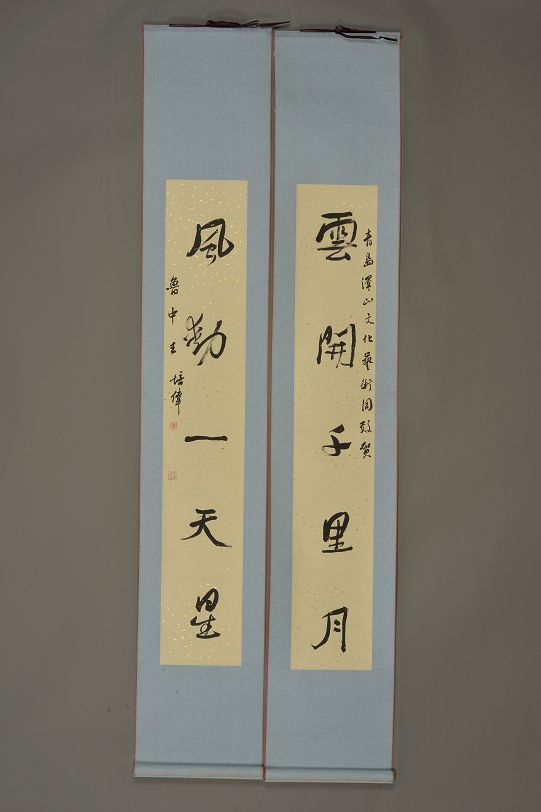 雲開千里月
青島澤山文化藝術園致賀
風動一天星
魯中王培偉